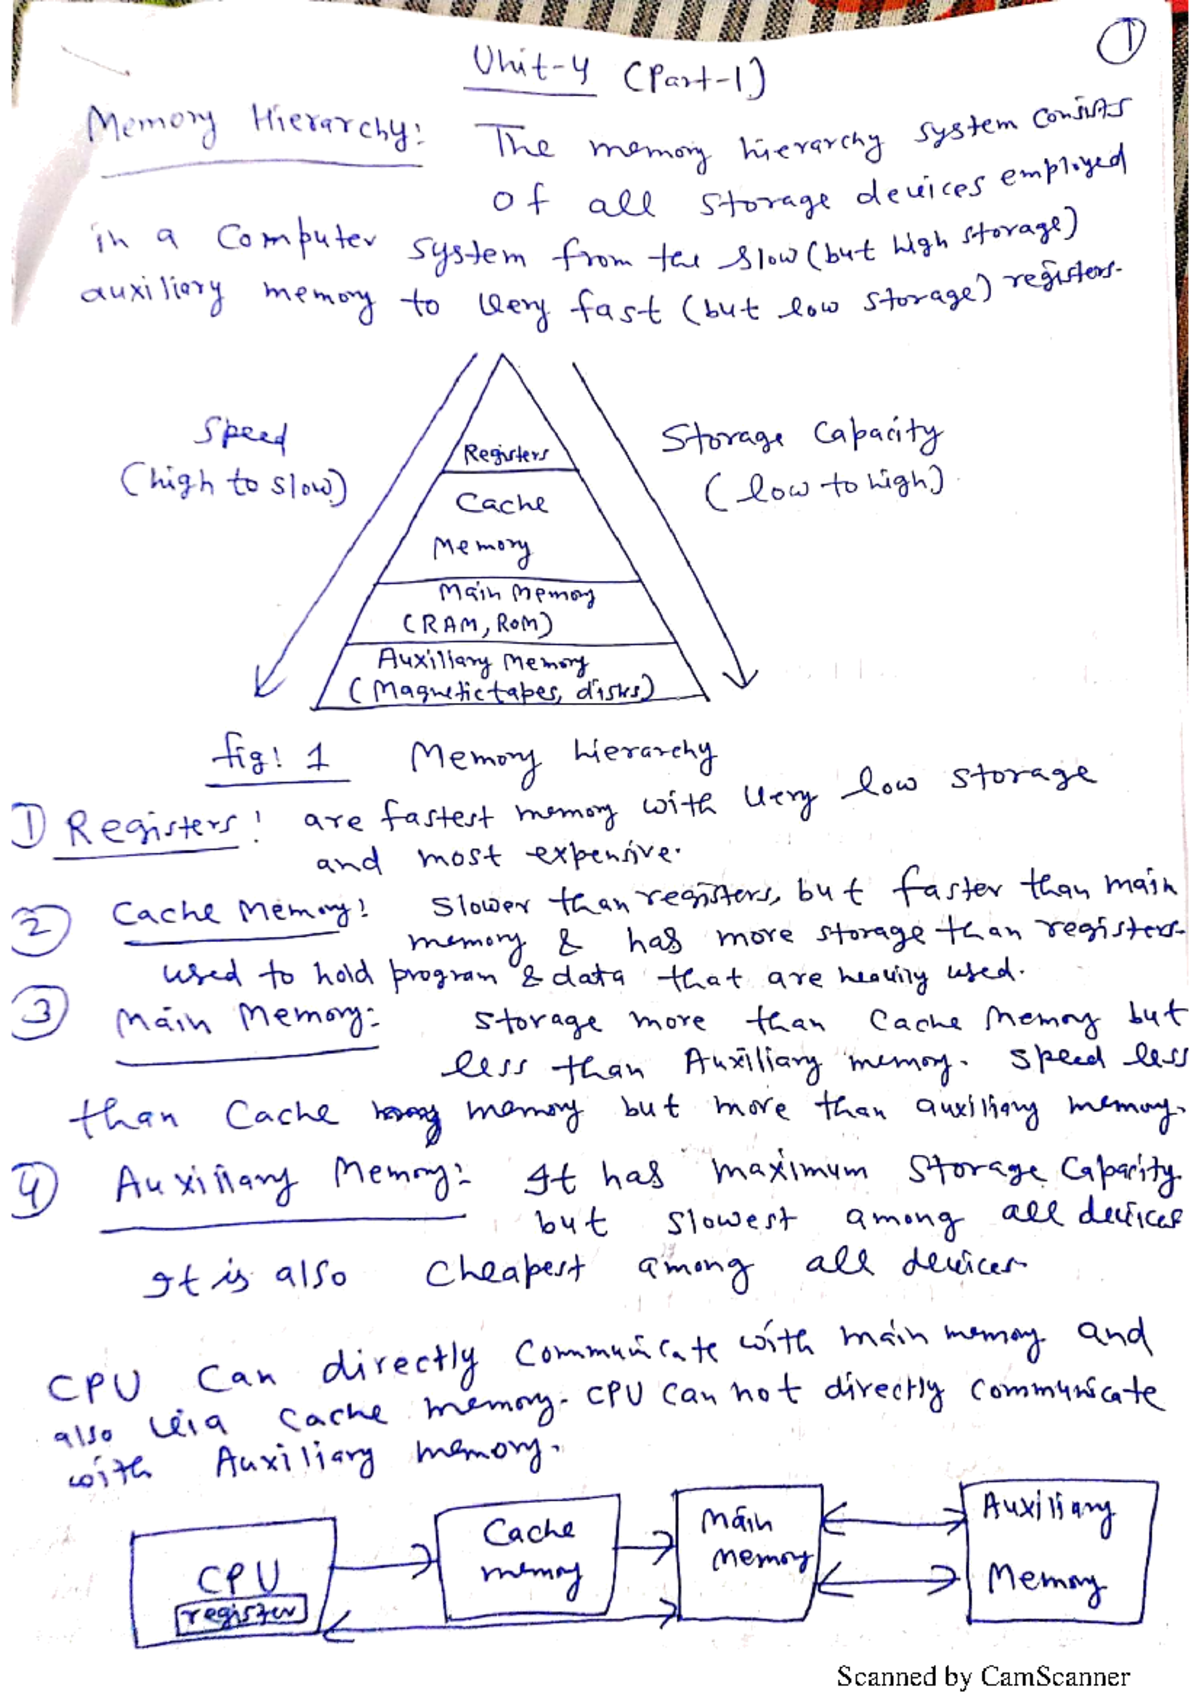 1
Unit-4 (Part-1)
Memory Hierarchy: The memory hierarchy system consists
of all storage devices employed
in a Computer system from the slow (but high storage)
auxiliary memory to very fast (but low storage) registers.
Speed
(high to slow)
Storage Capacity
(low to high)
Registers
Cache
Memory
Main Memory
(RAM, ROM)
Auxiliary Memory
(Magnetic tapes, disks)
fig: 1 Memory hierarchy
1) Registers: are fastest memory with very low storage
and most expensive.
2 Cache Memory: Slower than registers, but faster than main
memory & has more storage than registers.
used to hold program & data that are heavily used.
3 Main Memory: Storage more than Cache Memory but
less than Auxiliary memory. Speed less
than Cache memory but more than auxiliary memory.
4 Auxiliary Memory: It has maximum Storage Capacity
but slowest among all devices
It is also Cheapest among all devices
CPU Can directly Communicate with main memory and
also via Cache memory. CPU Can not directly Communicate
with Auxiliary memory.
CPU
register
Cache
memory
Main
Memory
Auxiliary
Memory
Scanned by CamScanner